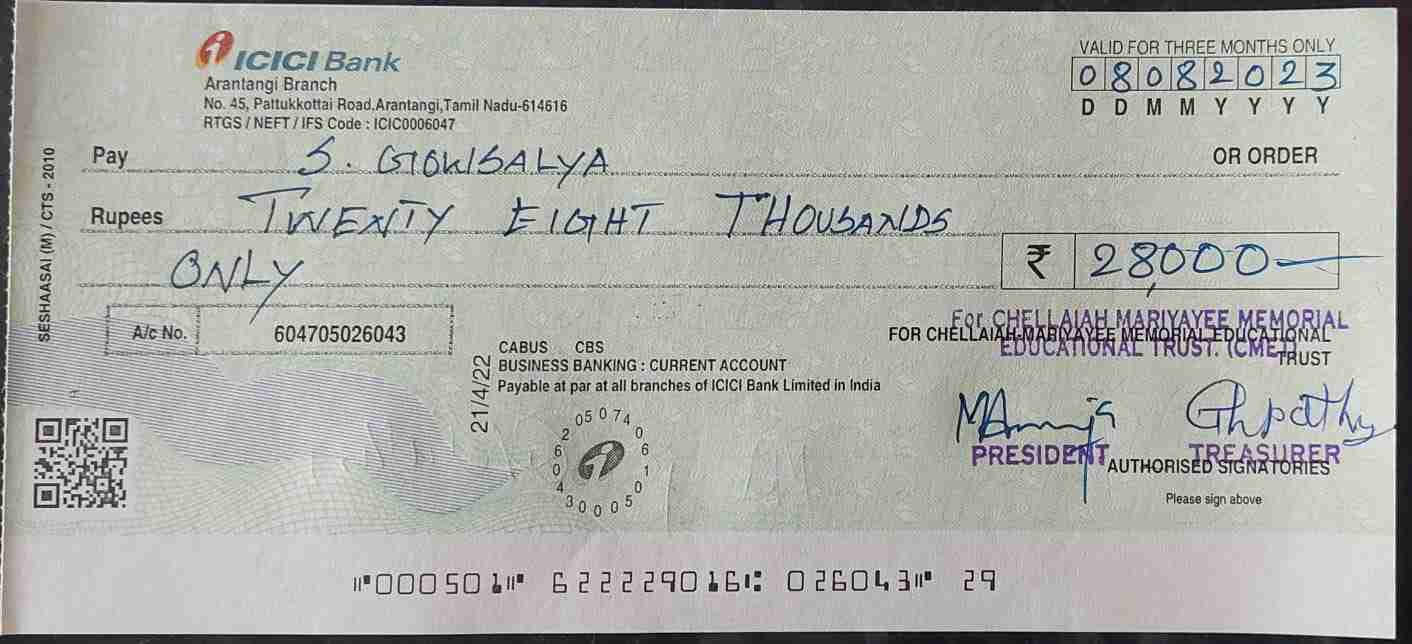 ICICI Bank
Arantangi Branch
No. 45, Pattukkottai Road,Arantangi,Tamil Nadu-614616
RTGS / NEFT / IFS Code : ICIC0006047
VALID FOR THREE MONTHS ONLY
08082023
D D M M Y Y Y Y
Pay S. GOWSALYA OR ORDER
Rupees TWENTY EIGHT THOUSANDS
ONLY
₹ 28,000
SESHAASAI (M) / CTS - 2010
A/c No. 604705026043
21/4/22
CABUS CBS
BUSINESS BANKING : CURRENT ACCOUNT
Payable at par at all branches of ICICI Bank Limited in India
For CHELLAIAH MARIYAYEE MEMORIAL
EDUCATIONAL TRUST. (CMET)
FOR CHELLAIAH MARIYAYEE MEMORIAL EDUCATIONAL
TRUST
PRESIDENT TREASURER
AUTHORISED SIGNATORIES
Please sign above
000501 622229016 026043 29